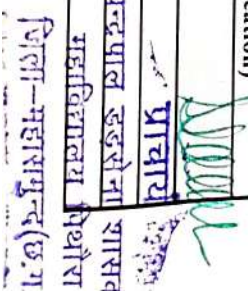 ention)
प्राचार्य
न्द्रपाल डडसेना शासक
महाविद्यालय पिथौरा
जिला-महासमुन्द (छ.ग.